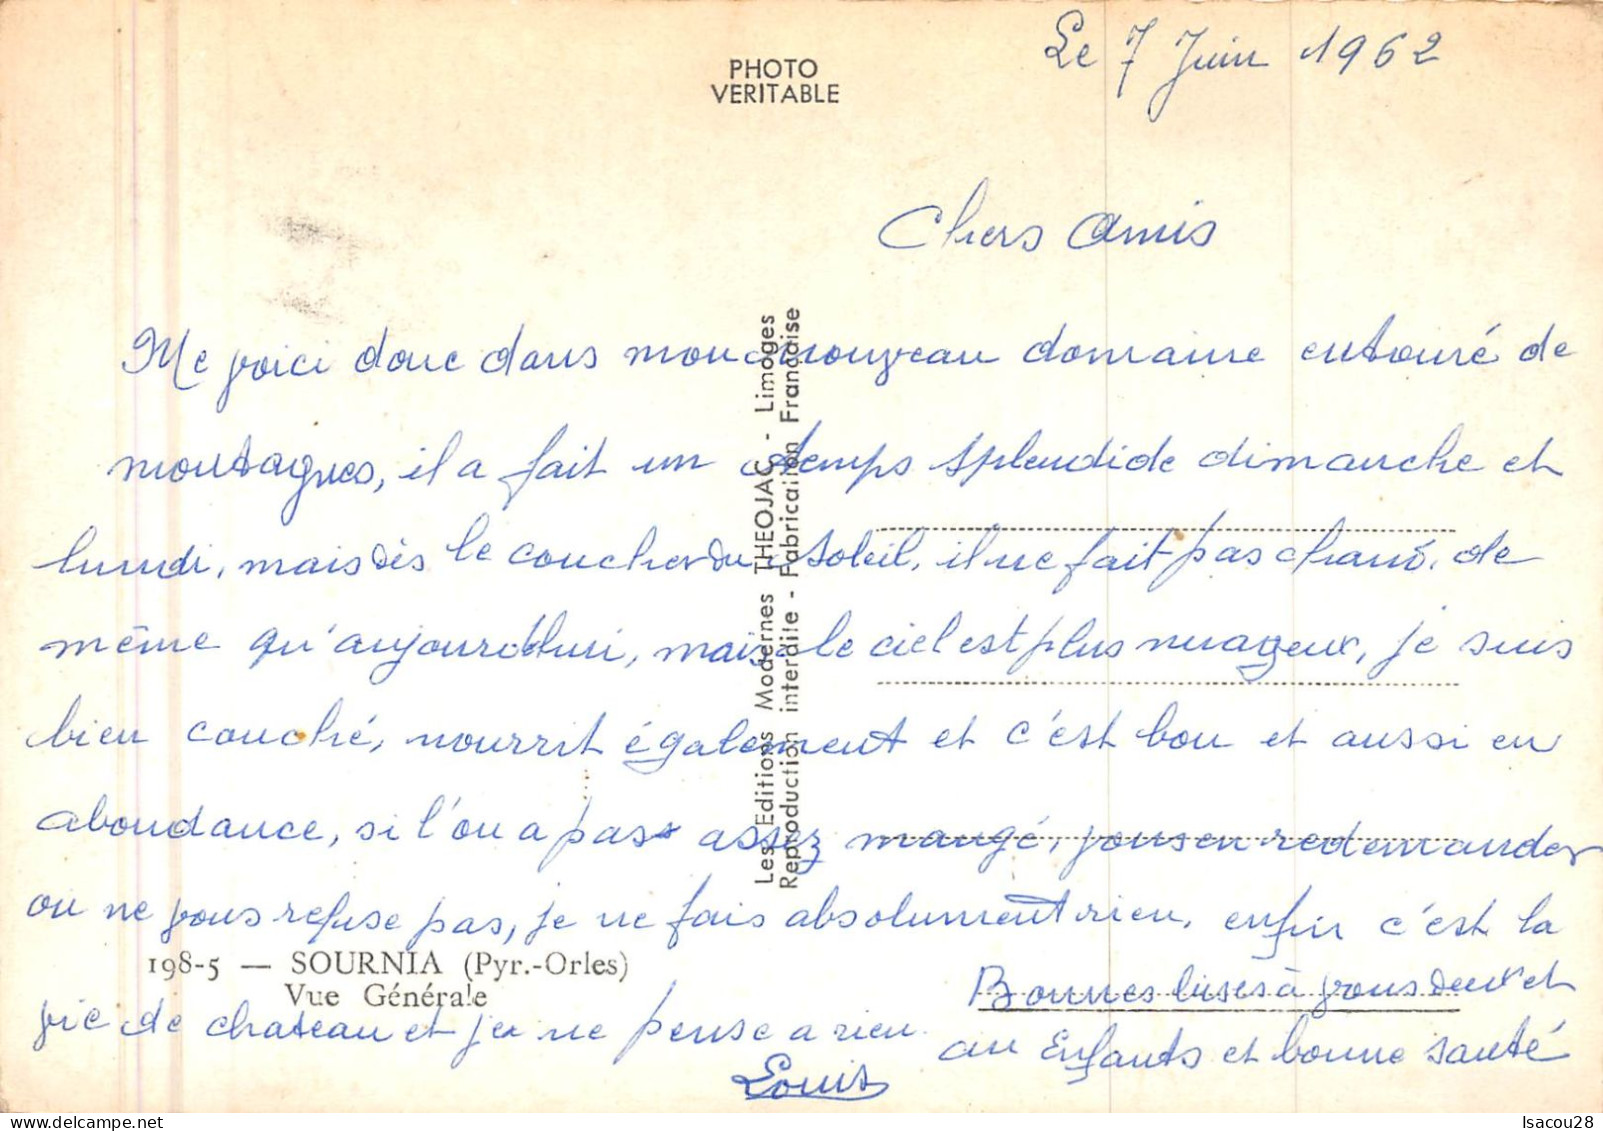 Le 7 Juin 1962
PHOTO
VERITABLE
Chers Amis
Me voici donc dans mon nouveau domaine entouré de
montagnes, il a fait un temps splendide dimanche et
lundi, mais dès le coucher du soleil, il ne fait pas chaud. de
même qu'aujourd'hui, mais le ciel est plus nuageux, je suis
bien couché, nourrit également et c'est bon et aussi en
abondance, si l'on a pas assez mangé, vous en redemander
on ne vous refuse pas, je ne fais absolument rien, enfin c'est la
vie de chateau et je ne pense a rien.
Bonnes bises à vous deux et
au Enfants et bonne santé
Louis
198-5 — SOURNIA (Pyr.-Orles)
Vue Générale
Les Editions Modernes THEOJAC - Limoges
Reproduction interdite - Fabrication Française
Isacou28